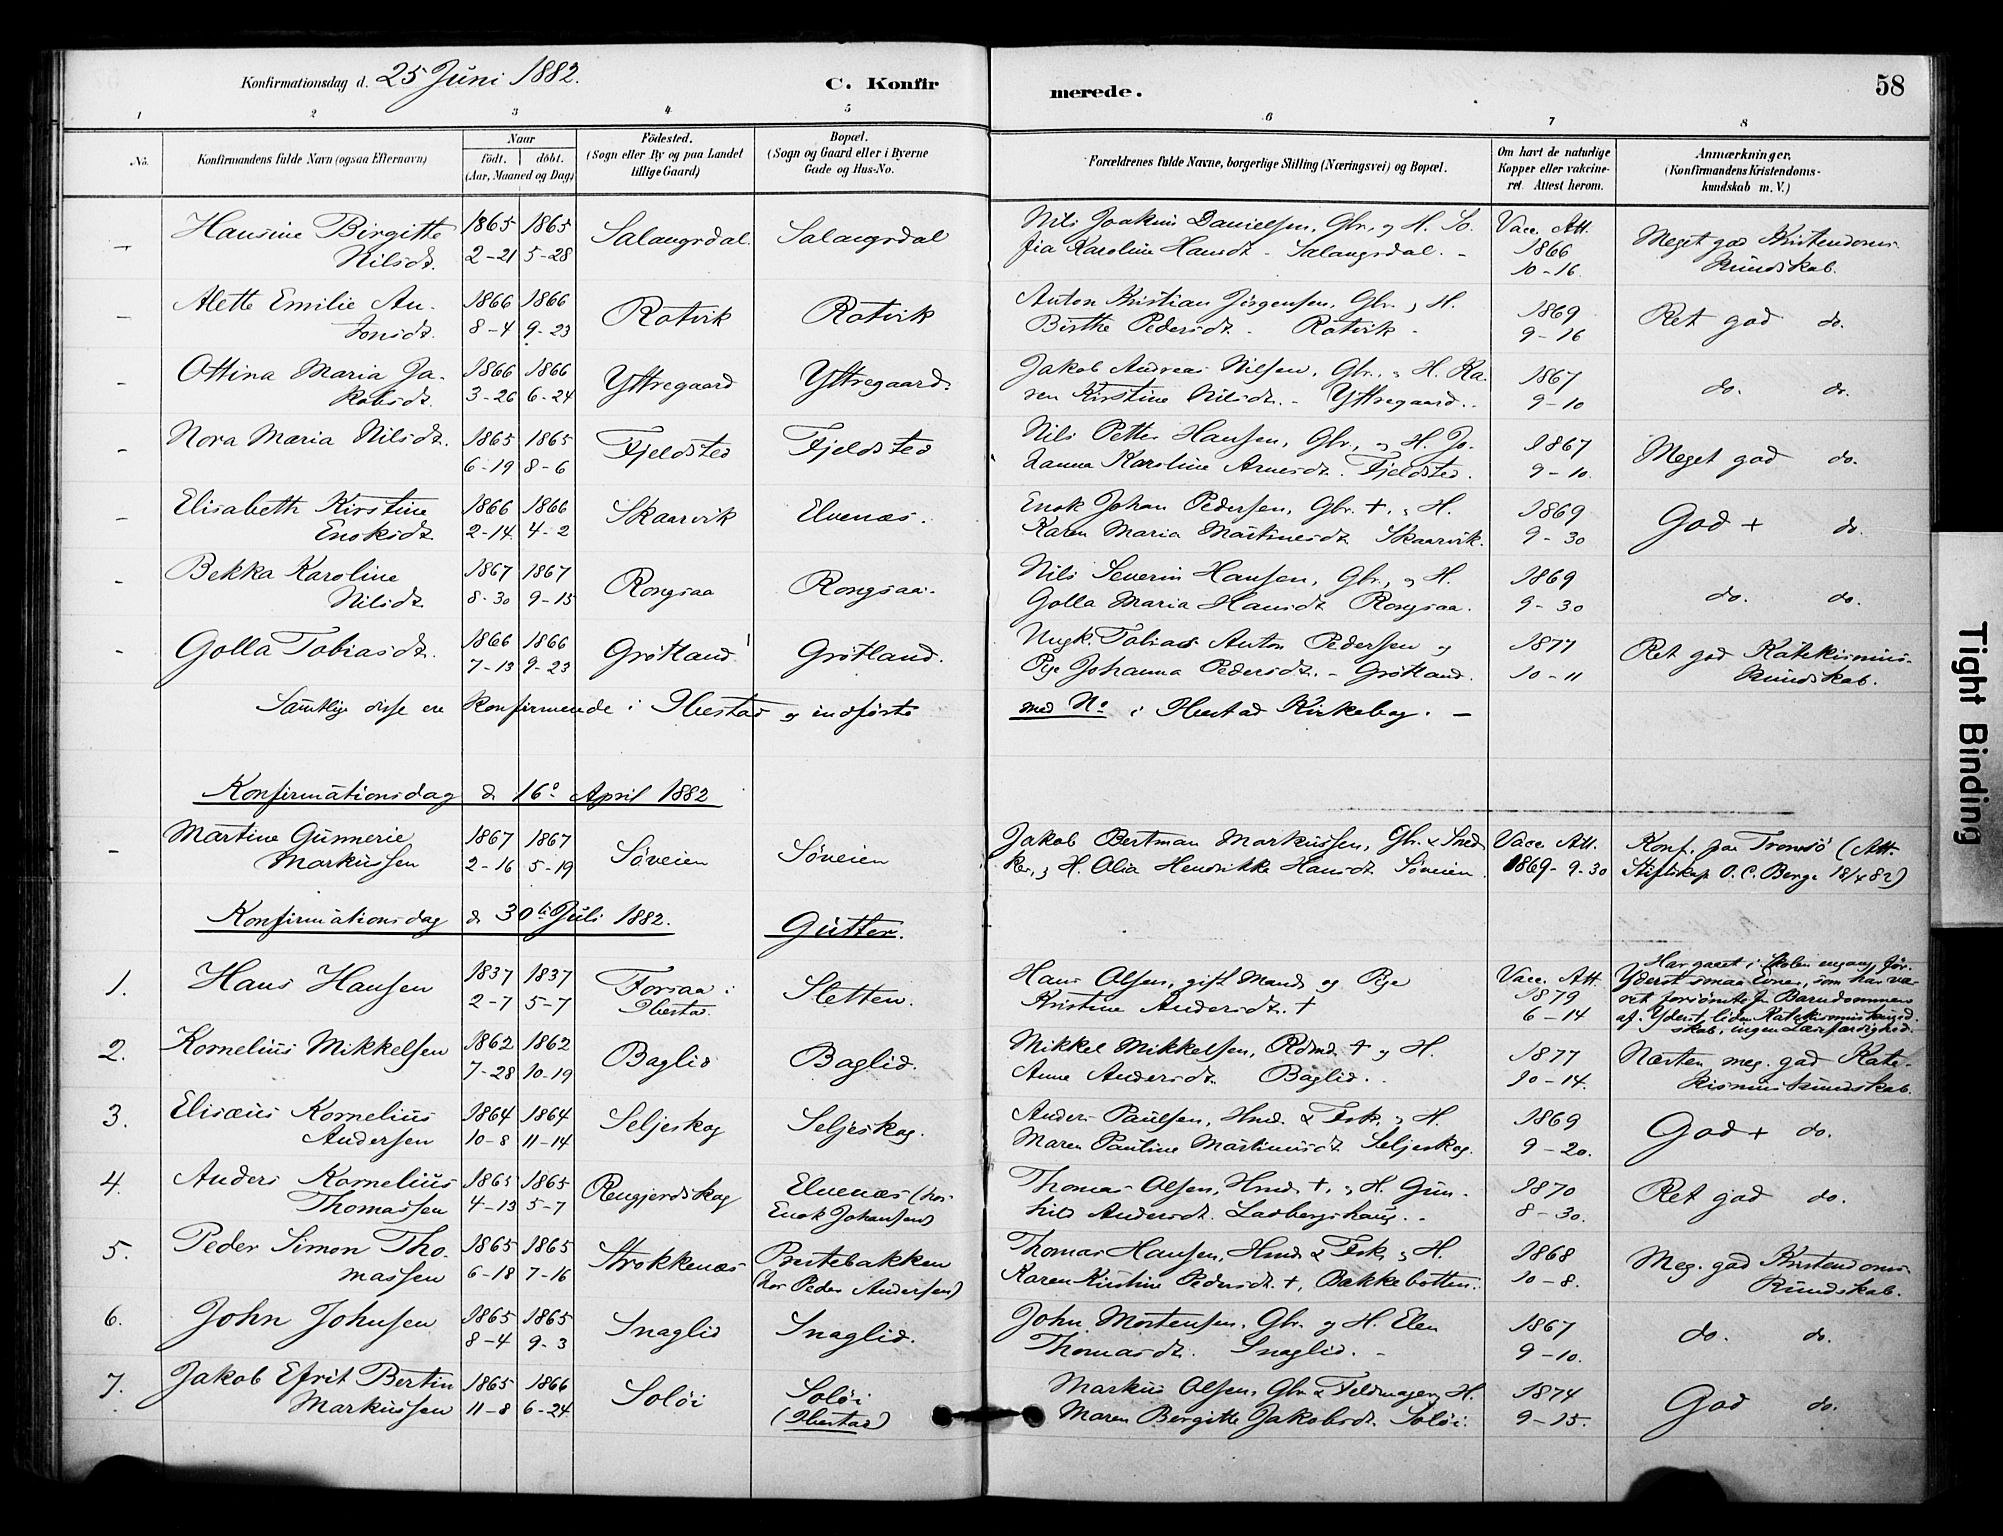 Konfirmationsdag d. 25 Juni 1882.
C. Konfirmerede.
58
1 2 3 4 5 6 7 8
No.
Konfirmandens fulde Navn (ogsaa Efternavn)
Naar
født. døbt.
(Aar, Maaned og Dag)
Fødested.
(Sogn eller By og paa Landet
tillige Gaard)
Bopæl.
(Sogn og Gaard eller i Byerne
Gade og Hus-No.
Forældrenes fulde Navne, borgerlige Stilling (Næringsvei) og Bopæl.
Om havt de naturlige
Kopper eller vakcine-
ret. Attest herom.
Anmærkninger.
(Konfirmandens Kristendoms-
kundskab m. V.)
- Hansine Birgitte 1865 1865 Salangsdal. Salangsdal Nils Joakim Danielsen, Gbr. og H. So- Vacc. Att. Meget god Kristendoms-
Nilsdt. 2-21 5-28 fia Karoline Hansdt. - Salangsdal. - 1866 10-16 kundskab.
- Alette Emilie An- 1866 1866 Rotvik Rotvik Anton Kristian Jørgensen, Gbr. & H. 1869 Ret god do.
tonsdt. 8-4 9-23 Birthe Pedersdt. - Rotvik - 9-16
- Ottina Maria Ja- 1866 1866 Yttregaard Yttregaard. Jakob Andreas Nilsen, Gbr., & H. Ka- 1867 do. do.
kobsdt. 3-26 6-24 ren Kirstine Nilsdt. - Yttregaard.. 9-10
- Nora Maria Nilsdt. 1865 1865 Fjeldsted Fjeldsted Nils Petter Hansen, Gbr., og H. Jo- 1867 Meget god do.
6-19 8-6 hanna Karoline Arnesdt. Fjeldsted. 9-10
- Elisabeth Kirstine 1866 1866 Skaarvik Elvenæs. Enok Johan Pedersen, Gbr. +, & H. 1869 God + do.
Enoksdt. 2-14 4-2 Karen Maria Martinesdt. Skaarvik. 9-30
- Bekka Karoline 1867 1867 Rongsaa Rongsaa. Nils Severin Hansen, Gbr., og H. 1869 do. do.
Nilsdt. 8-30 9-15 Golla Maria Hansdt. Rongsaa. 9-30
- Golla Tobiasdt. 1866 1866 Grøtland Grøtland. Ungk. Tobias Anton Pedersen og 1877 Ret god Katekismus-
7-13 9-23 Pige Johanna Pedersdt. - Grøtland. 10-11 kundskab.
Samtlige disse ere konfirmerede i Ibestad og indførte med No i Ibestad Kirkebog. -
Konfirmationsdag d. 16de April 1882
- Martine Gunnerie 1867 1867 Søveien Søveien Jakob Bertman Markussen, Gbr. & Sned- Vacc. Att. Konf. paa Tromsø (Att.
Markussen 2-16 5-19 ker, & H. Olia Hendrikke Hansdt. Søveien. 1869-9-30 Stiftskap. O. C. Berge 18/4 82)
Konfirmationsdag d. 30te Juli 1882. Gutter.
1. Hans Hansen 1837 1837 Forsaa i Sletten. Hans Olsen, gift Mand og Pige Vacc. Att. Har gaaet i Skolen engang før.
2-7 5-7 Ibestad. Kristine Andersdt. + 1879 6-14 Yderst smaa Evner, som har væ-
ret forsømte fra Barndommen
af. Yderst liden Katekismuskund-
skab, ingen Læsefærdighed.
2. Kornelius Mikkelsen 1862 1862 Baglid Baglid. Mikkel Mikkelsen, Rdmd. + og H. 1877 Næsten meg. god Kate-
7-28 10-19 Anne Andersdt. Baglid.. 10-14. kismuskundskab.
3. Elisæus Kornelius 1864 1864 Seljeskog Seljeskog. Anders Paulsen, Hmd. & Fisk. & H. 1869 God + do.
Andersen 10-8 11-14 Maren Pauline Martinusdt. Seljeskog. 9-20.
4. Anders Kornelius 1865 1865 Rengjerdskog Elvenæs (hos Thomas Olsen, Hmd. +, & H. Gun- 1870 Ret god do.
Thomassen 4-13 5-7 Enok Johansen) hild Andersdt. Ladbergshaug.. 8-30.
5. Peder Simon Tho- 1865 1865 Strokkenæs Prestebakken Thomas Hansen, Hmd. & Fisk. & H. 1868 Meg. god Kristendoms-
massen 6-18 7-16 (hos Peder Andersen) Karen Kirstine Pedersdt. +, Bakkebotten. 10-8. kundskab.
6. John Johnsen 1865 1865 Snaglid Snaglid. John Mortensen, Gbr. og H. Elen 1867 do. do.
8-4 9-3 Thomasdt. Snaglid. - 9-10.
7. Jakob Efrit Bertin 1865 1866 Soløi Soløi Markus Olsen, Gbr. & Feldmager, H. 1874 God do.
Markussen 11-8 6-24 (Ibestad) Maren Bergitte Jakobsdt. Soløi. 9-15.
Tight Binding